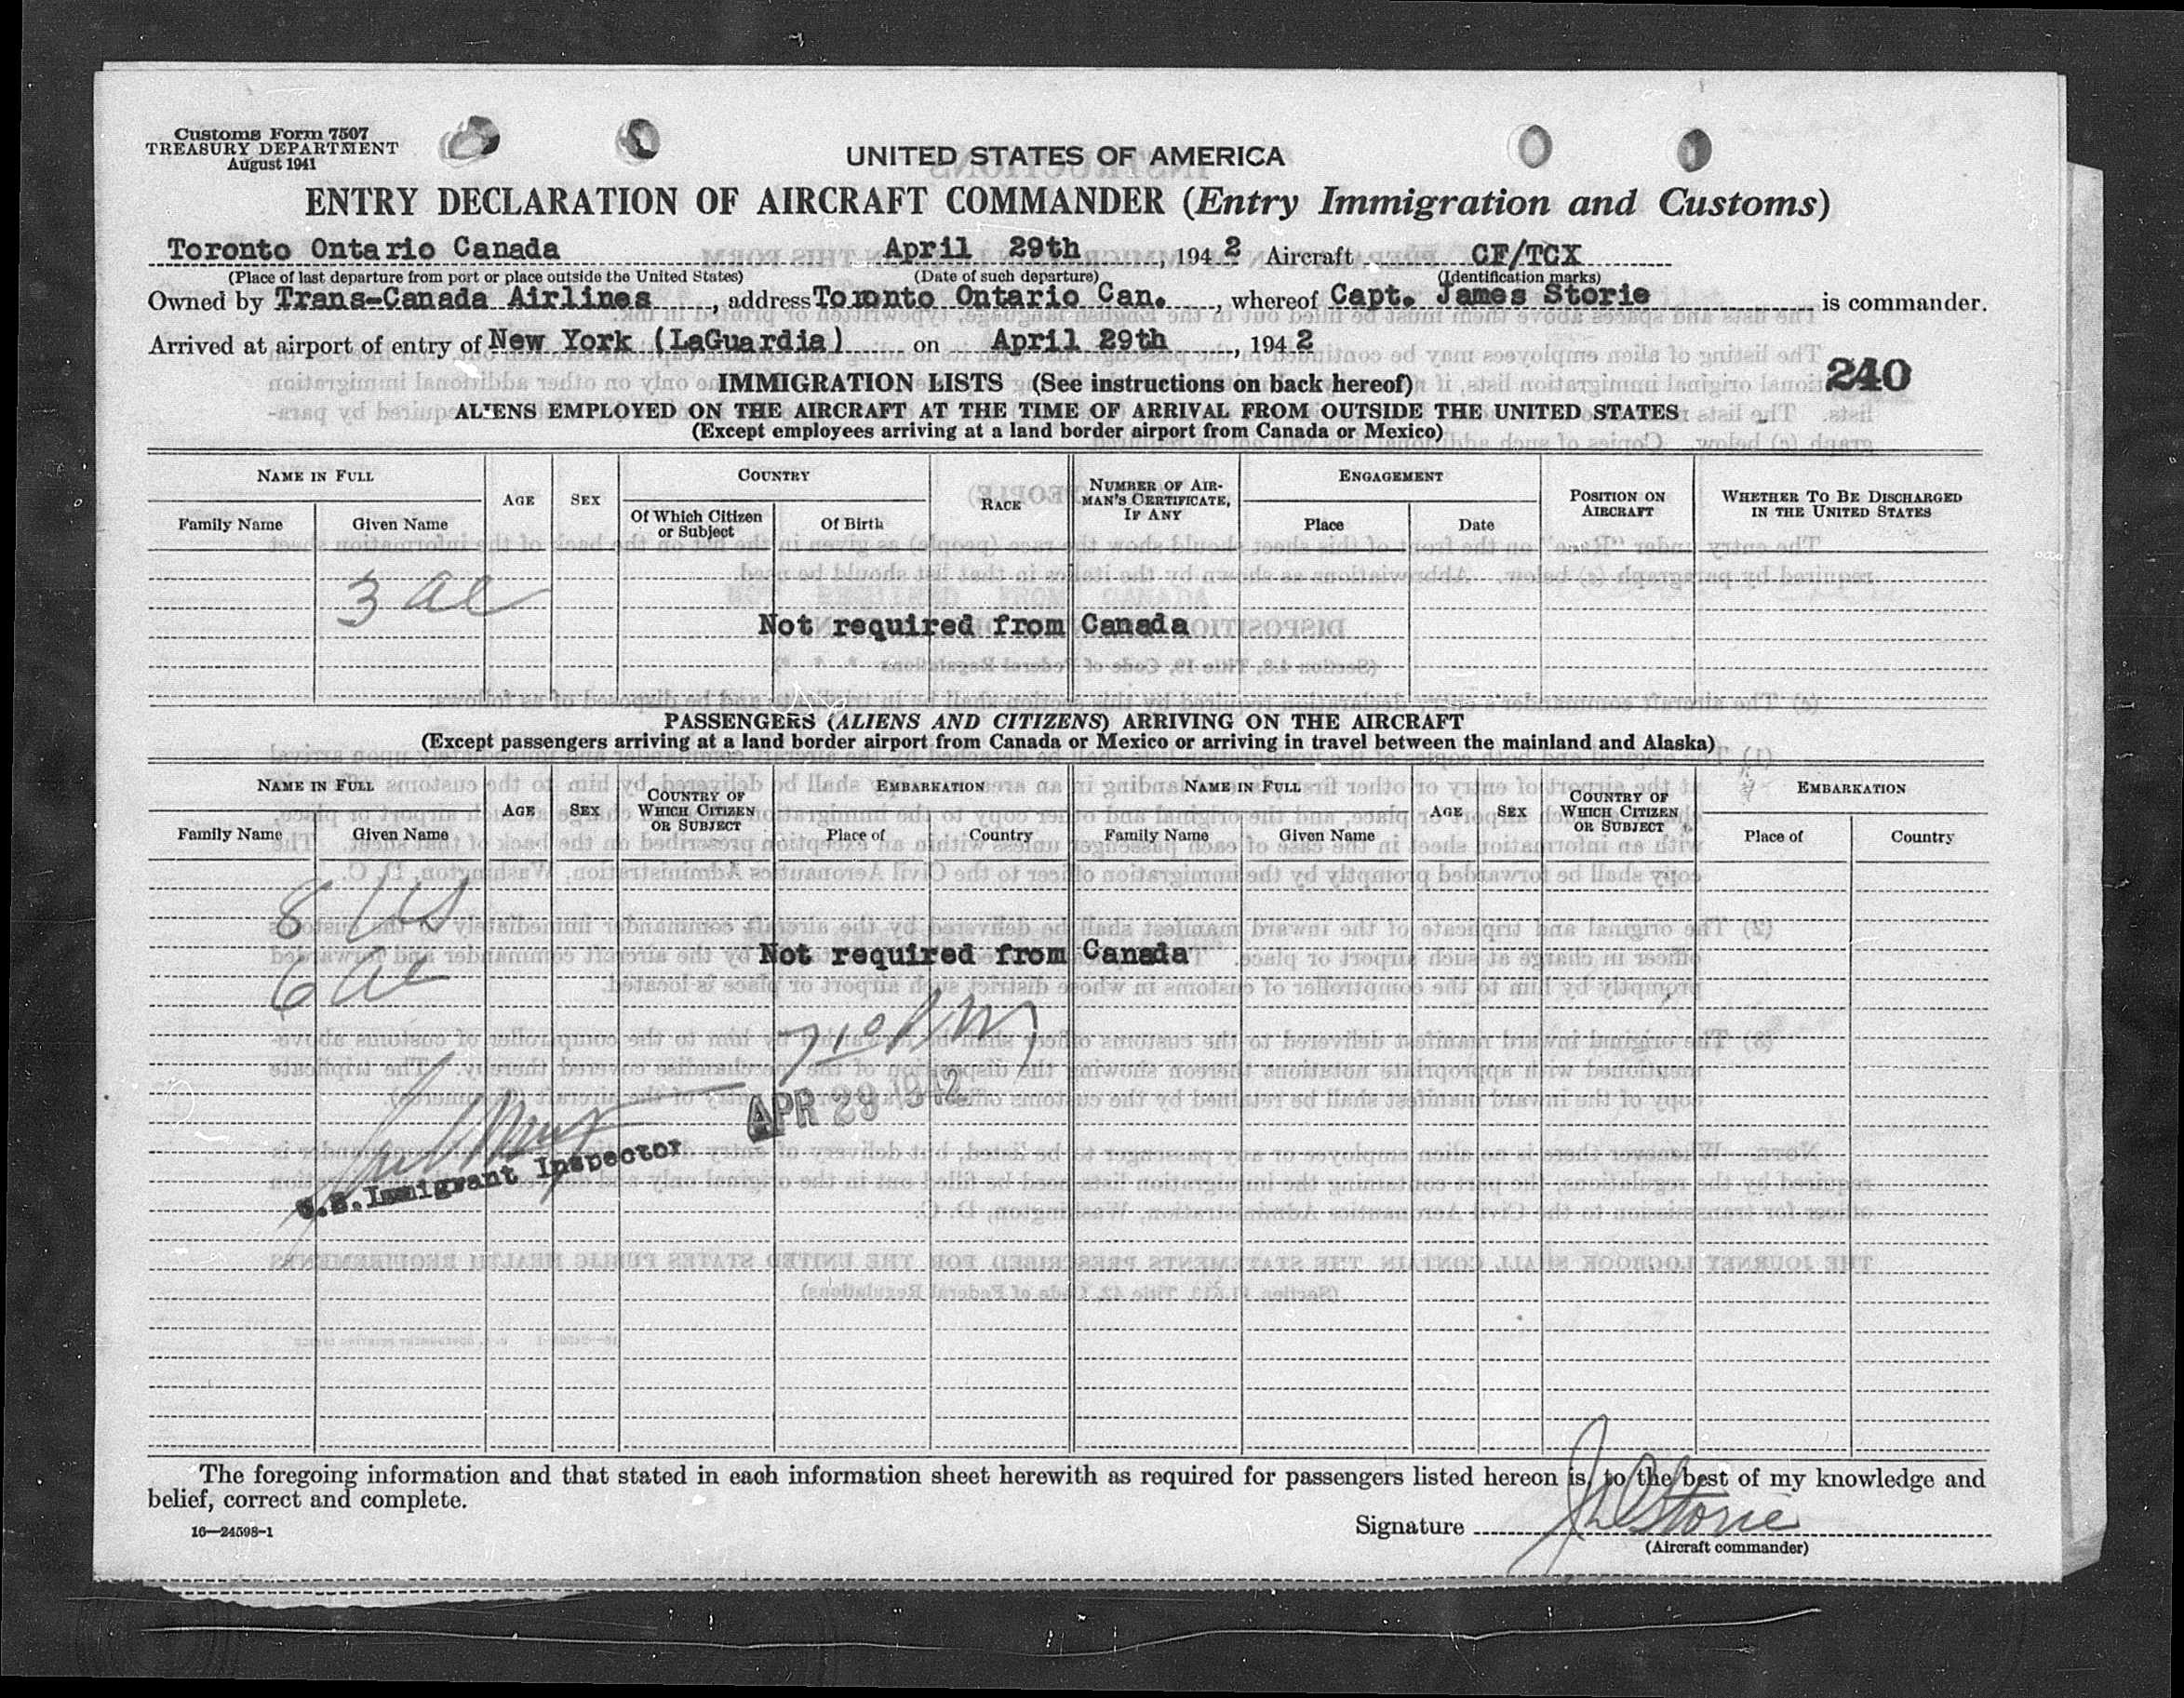 Customs Form 7507
TREASURY DEPARTMENT
August 1941
UNITED STATES OF AMERICA
ENTRY DECLARATION OF AIRCRAFT COMMANDER (Entry Immigration and Customs)
Toronto Ontario Canada April 29th, 1942 Aircraft CF/TCX
(Place of last departure from port or place outside the United States) (Date of such departure) (Identification marks)
Owned by Trans-Canada Airlines, address Toronto Ontario Can., whereof Capt. James Storie is commander.
Arrived at airport of entry of New York (LaGuardia) on April 29th, 1942
240
IMMIGRATION LISTS (See instructions on back hereof)
ALIENS EMPLOYED ON THE AIRCRAFT AT THE TIME OF ARRIVAL FROM OUTSIDE THE UNITED STATES
(Except employees arriving at a land border airport from Canada or Mexico)
NAME IN FULL AGE SEX COUNTRY RACE NUMBER OF AIRMAN'S CERTIFICATE, IF ANY ENGAGEMENT POSITION ON AIRCRAFT WHETHER TO BE DISCHARGED IN THE UNITED STATES
Family Name Given Name Of Which Citizen or Subject Of Birth Place Date
3 al
Not required from Canada
PASSENGERS (ALIENS AND CITIZENS) ARRIVING ON THE AIRCRAFT
(Except passengers arriving at a land border airport from Canada or Mexico or arriving in travel between the mainland and Alaska)
NAME IN FULL AGE SEX COUNTRY OF WHICH CITIZEN OR SUBJECT EMBARKATION NAME IN FULL AGE SEX COUNTRY OF WHICH CITIZEN OR SUBJECT EMBARKATION
Family Name Given Name Place of Country Family Name Given Name Place of Country
8 US
6 al
Not required from Canada
710 PM
APR 29 1942
U.S. Immigrant Inspector
The foregoing information and that stated in each information sheet herewith as required for passengers listed hereon is, to the best of my knowledge and
belief, correct and complete.
16—24598-1
Signature J Storie
(Aircraft commander)